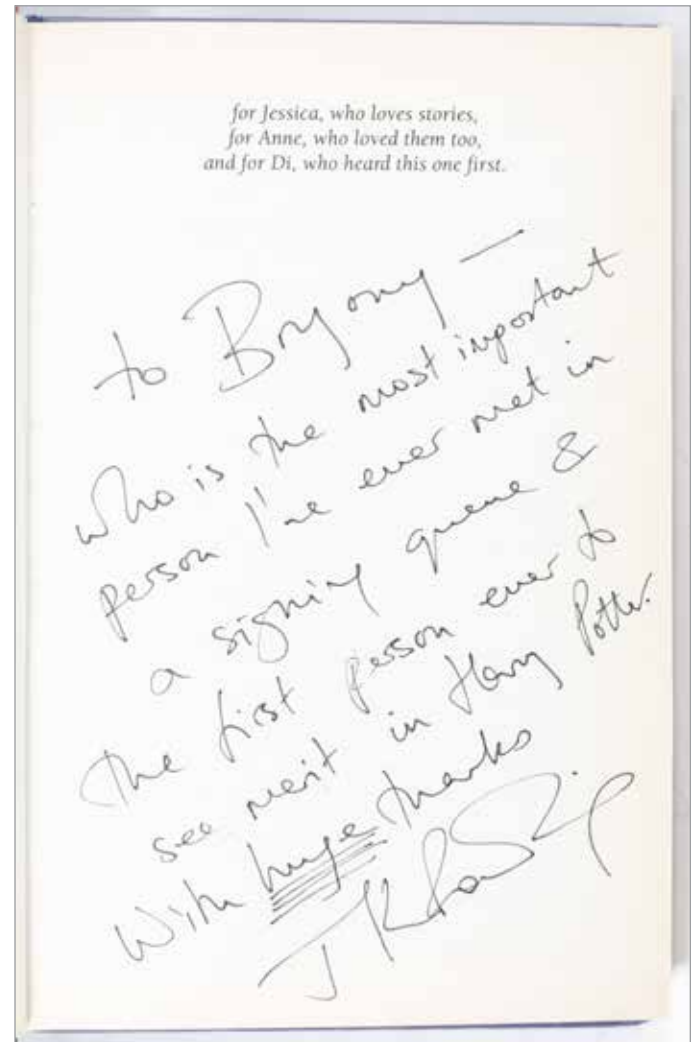 for Jessica, who loves stories,
for Anne, who loved them too,
and for Di, who heard this one first.
to Bryony —
who is the most important
person I've ever met in
a signing queue &
the first person ever to
see merit in Harry Potter.
With huge thanks
J K Rowling